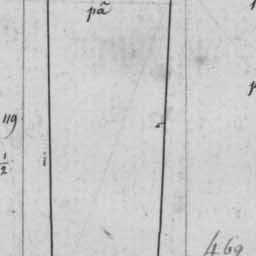 pã
119
1/2
i
469